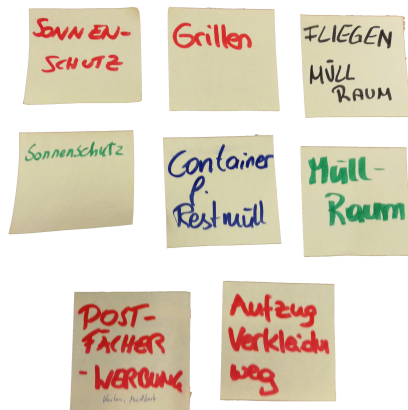 SONNEN-
SCHUTZ
Grillen
FLIEGEN
MÜLL
RAUM
Sonnenschutz
Container
f.
Restmüll
Müll-
Raum
POST-
FÄCHER
- WERBUNG
Aufzug
Verkleidu
weg